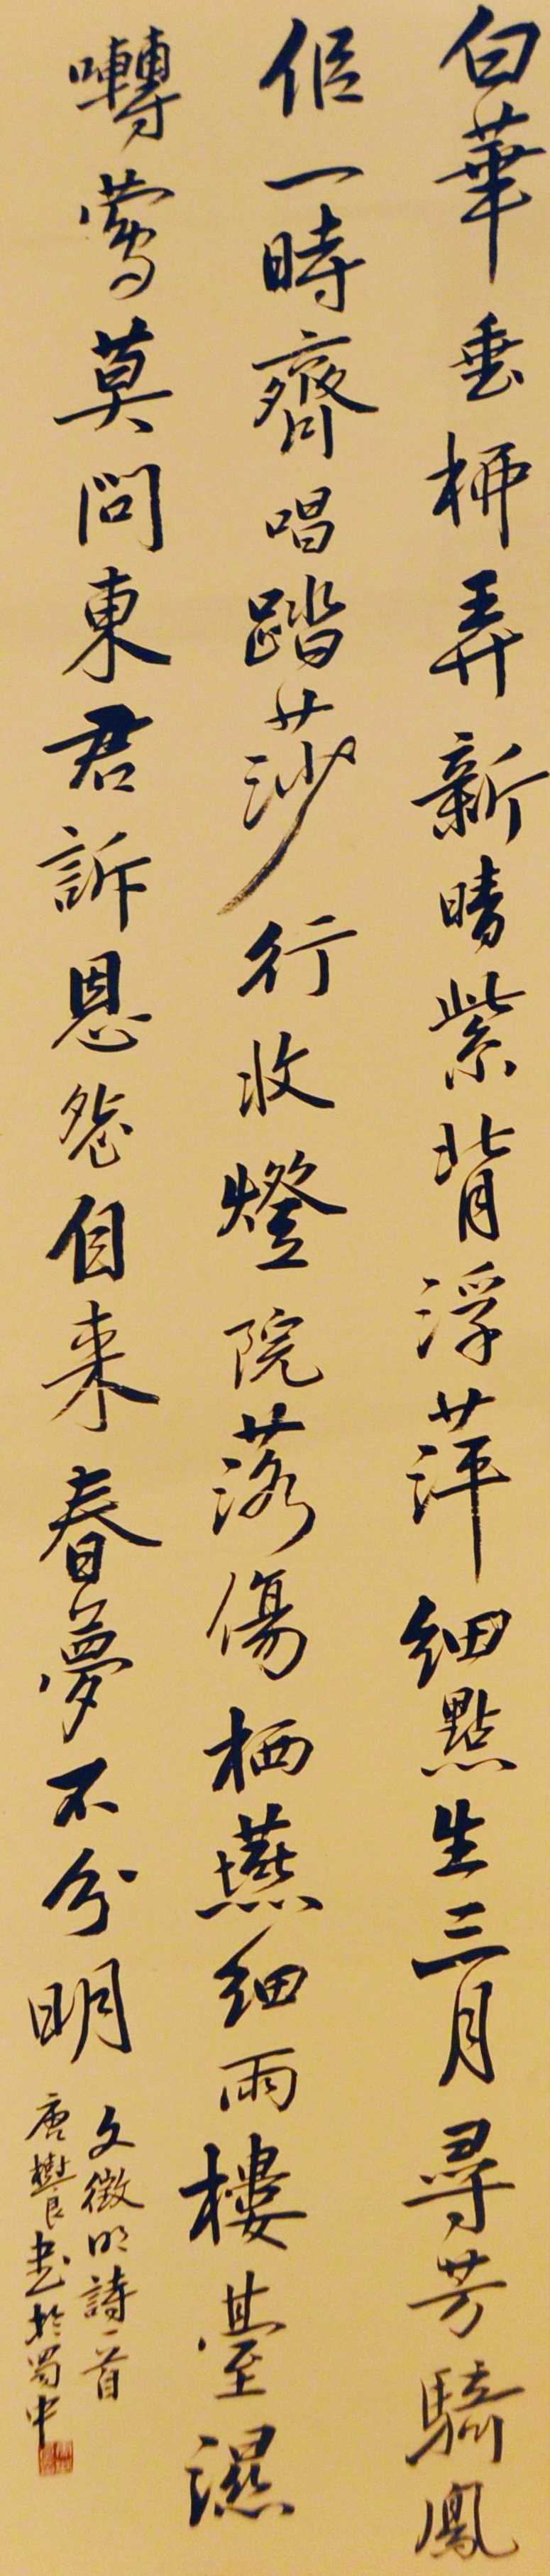 白華垂柳弄新晴紫背浮萍細點生三月尋芳騎鳳
侶一時齊唱踏莎行收燈院落傷栖燕細雨樓臺濕
囀鶯莫問東君訴恩怨自来春夢不分明
文徵明詩一首
唐樹良书於蜀中